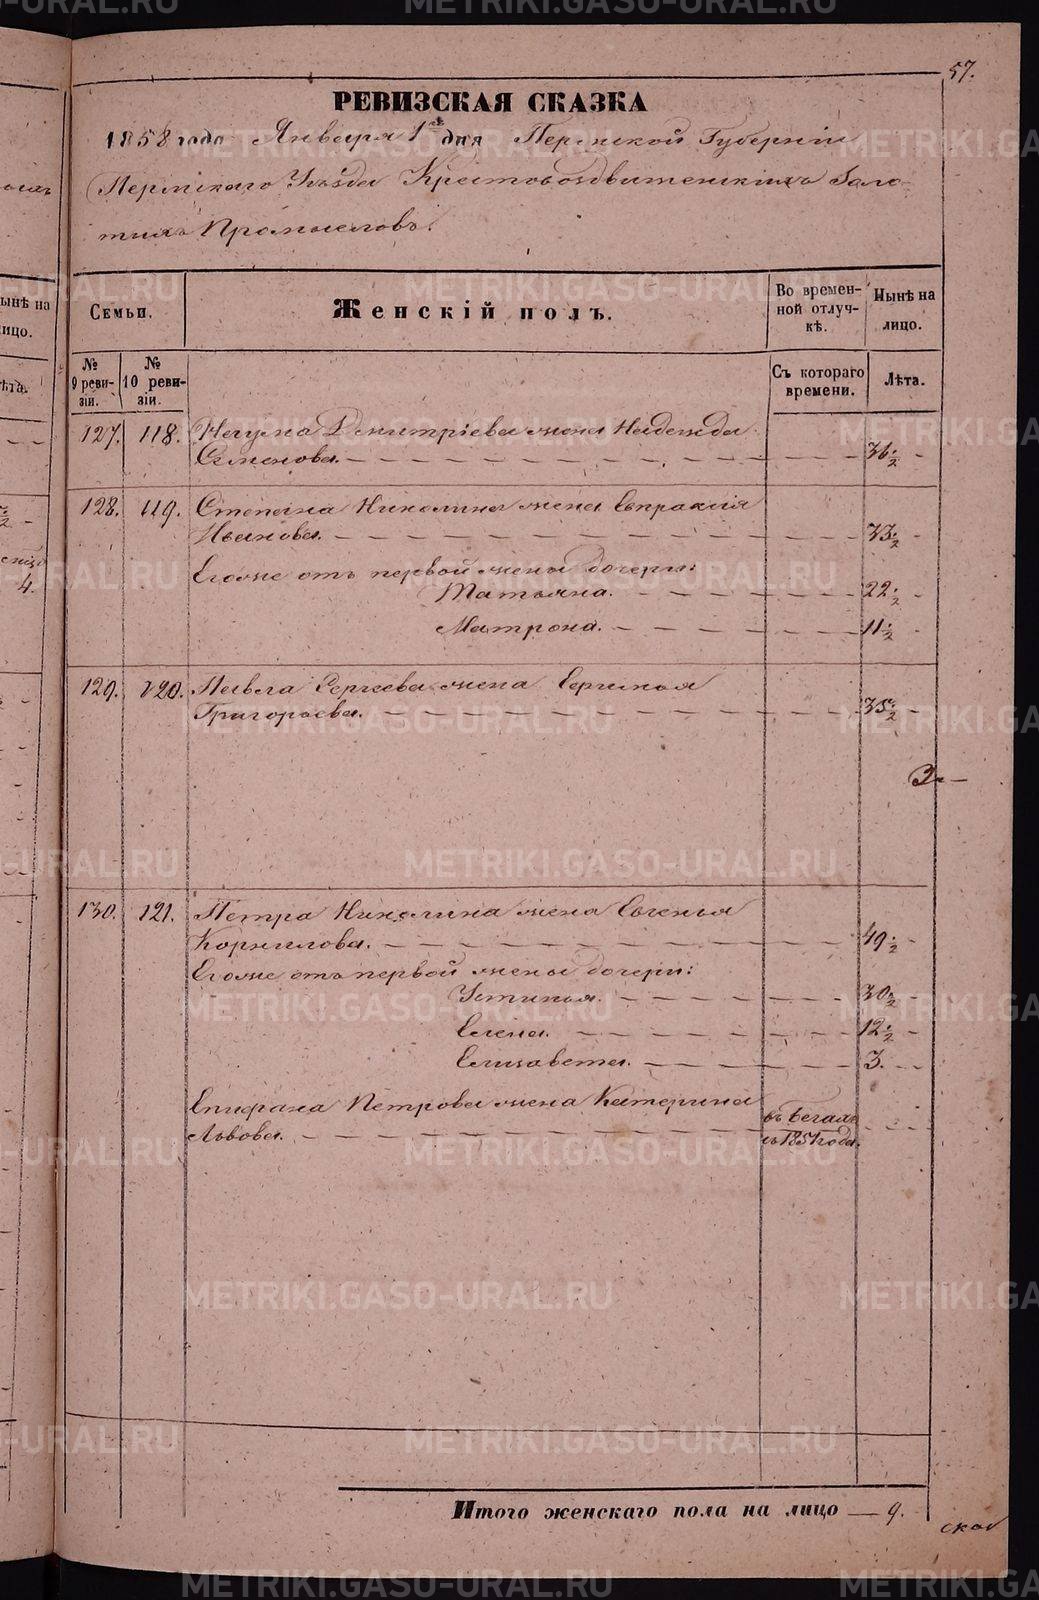 57.
РЕВИЗСКАЯ СКАЗКА
1858 года Января 1го дня Пермской Губерніи
Пермскаго Уѣзда Крестовоздвиженскихъ Золо-
тыхъ Промысловъ.
Семьи.
Женскій полъ.
Во времен-
ной отлуч-
кѣ.
Нынѣ на
лицо.
№
9 реви-
зіи.
№
10 реви-
зіи.
Съ котораго
времени.
Лѣта.
127. 118. Наума Дмитріева жена Надежда
Семенова. 36 ½
128. 119. Степана Николина жена Евпраксія
Иванова. 33 ½
Егоже отъ первой жены дочери:
Татьяна. 22 ½
Матрона. 11 ½
129. 120. Павла Сергеева жена
Григорьева. 35 ½
130. 121. Петра Николина жена Евгенья
Корнилова. 49 ½
Егоже отъ первой жены дочери:
Устинья. 30 ½
Елена. 12 ½
Елизавета. 3.
Епифана Петрова жена Катерина
Львова. въ бегахъ
съ 1851 года.
Итого женскаго пола на лицо — 9.
METRIKI.GASO-URAL.RU